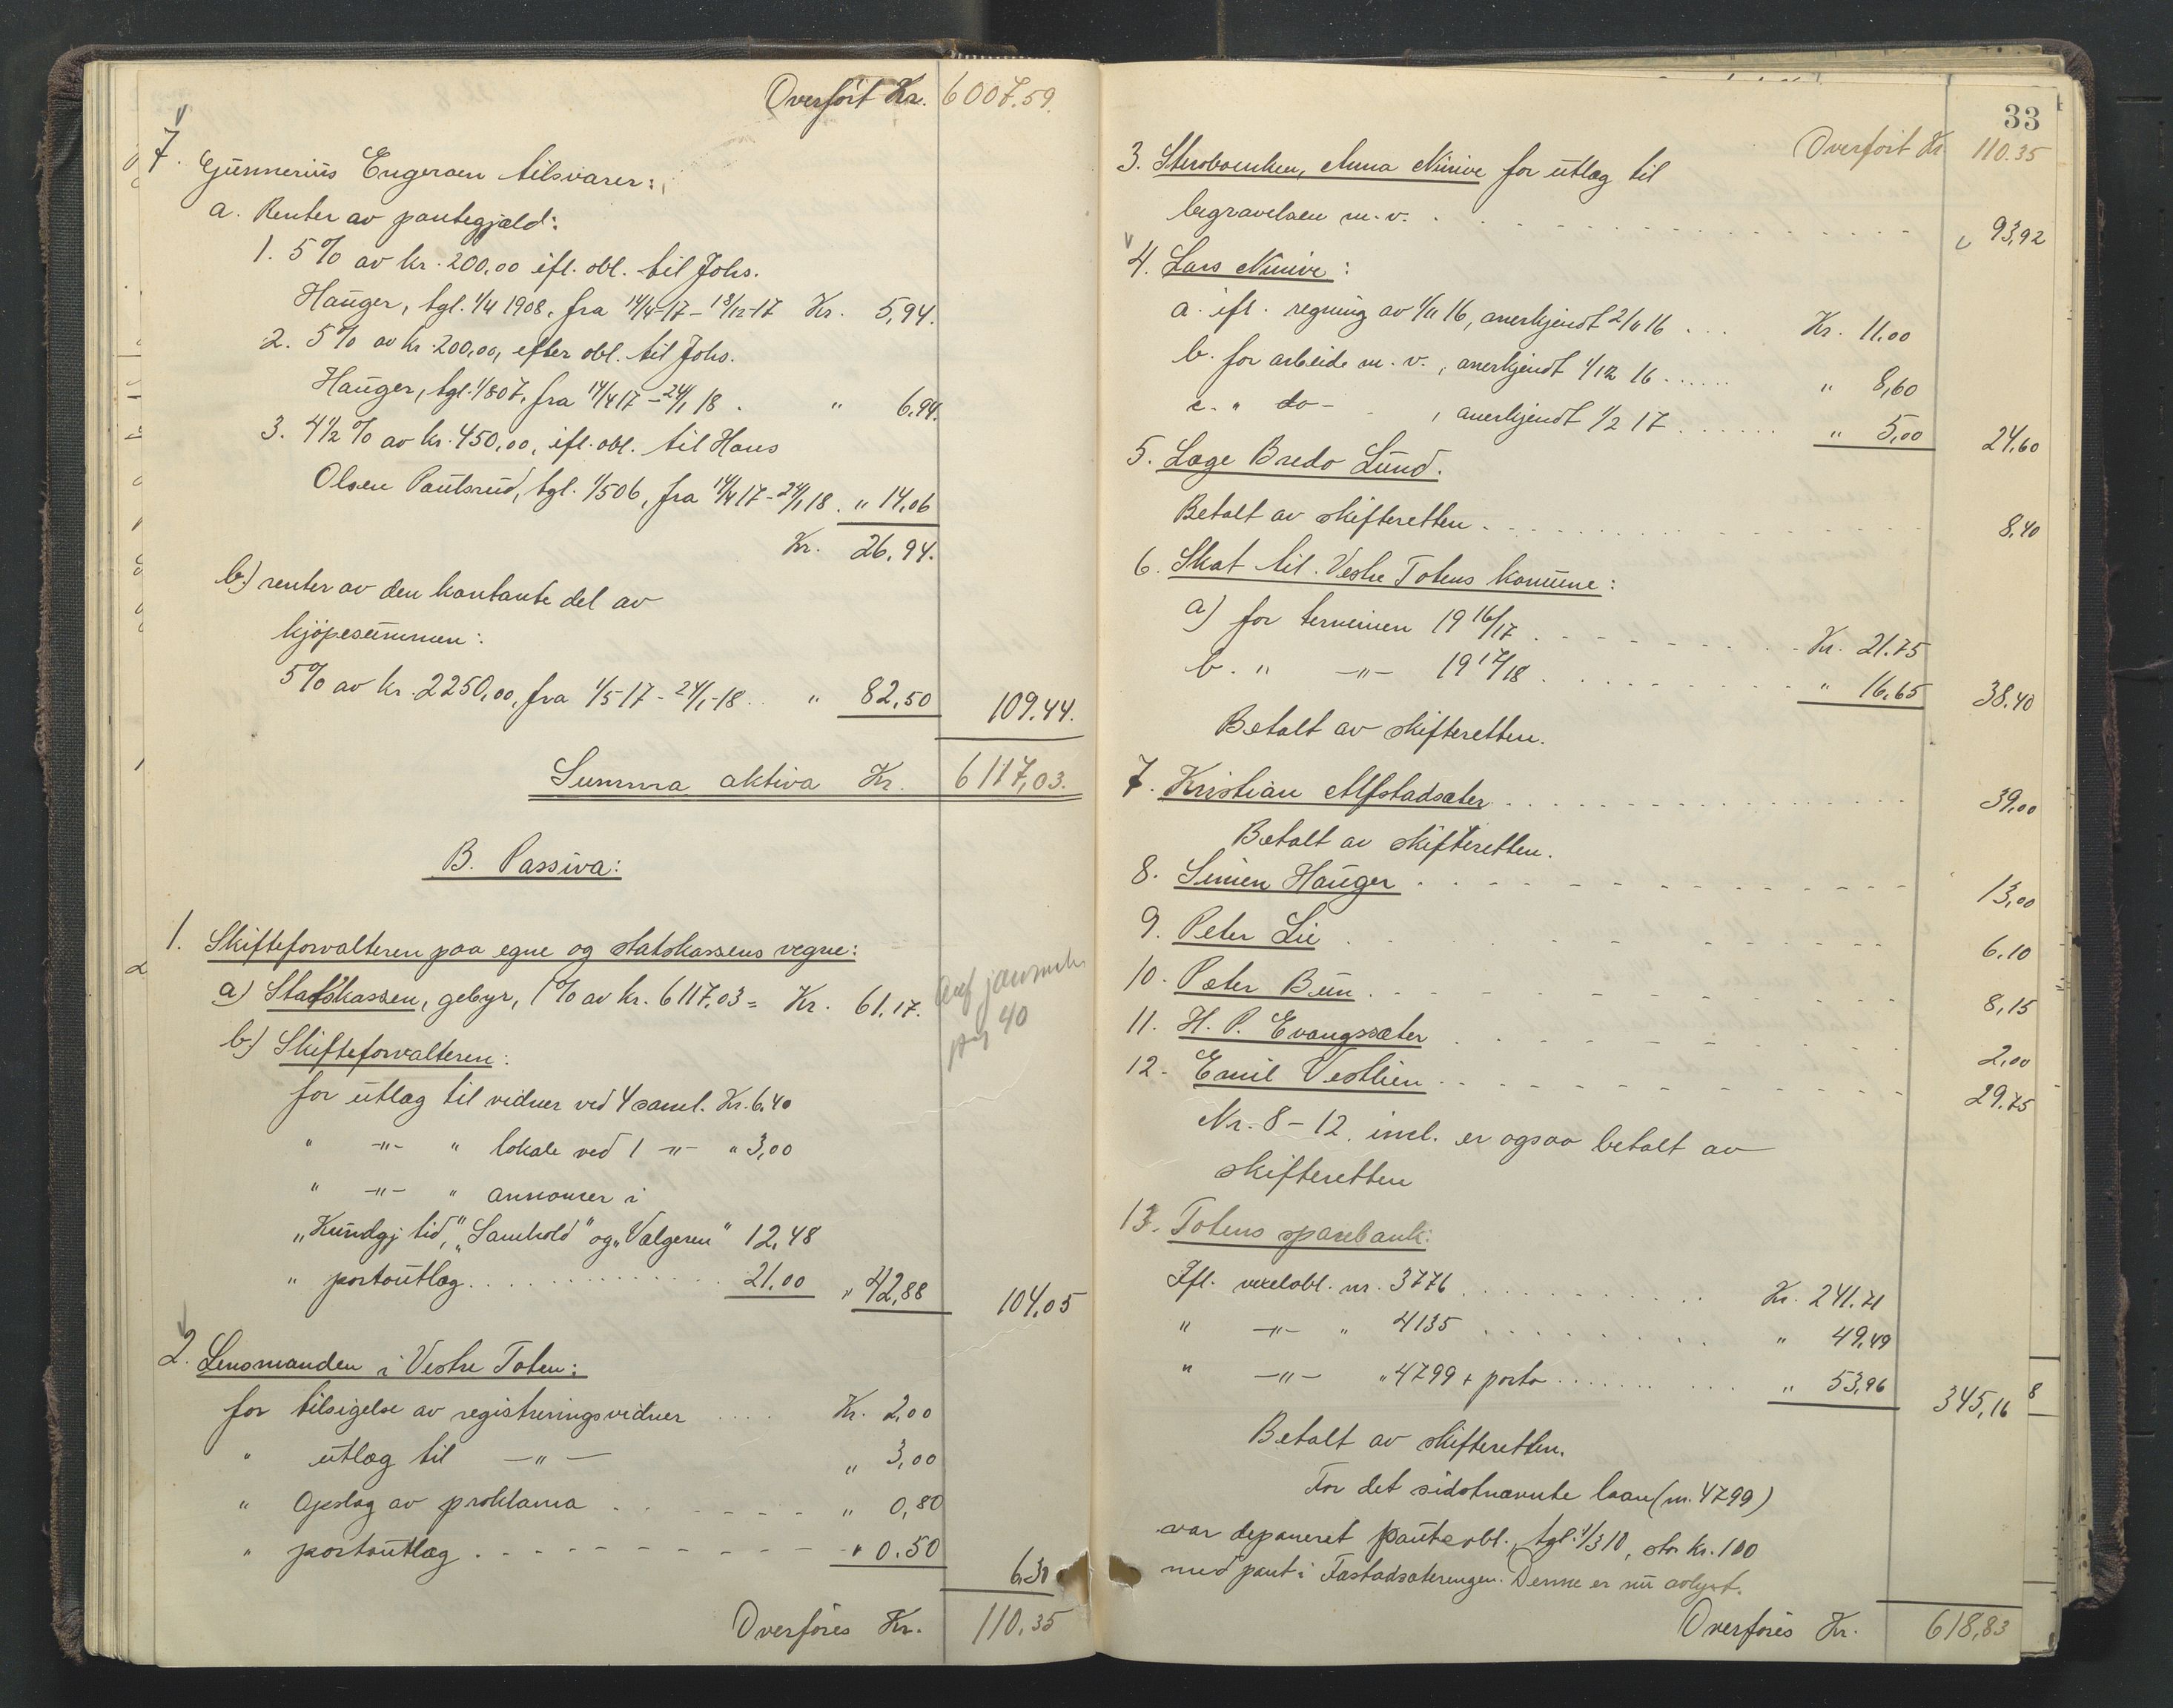 Overført Kr. 6007.59.
7. Gunnerius Engeraen tilsvarer:
a. Renter av pantegjæld:
1. 5% av kr. 200,00 ifl. obl. til Johs.
Hauger, tgl. 1/4 1908, fra 14/4-17 - 18/12-17 Kr. 5,94.
2. 5% av kr. 200,00, efter obl. til Johs.
Hauger, tgl. 1/8 07, fra 14/4 17 - 24/1 18 . " 6,94.
3. 4 1/2 % av kr. 450,00, ifl. obl. til Hans
Olsen Pautsrud, tgl. 1/5 06, fra 14/4 17 - 24/1 18 . " 14,06
Kr. 26,94.
b.) renter av den kontante del av
kjøpesummen:
5% av kr. 2250,00, fra 1/5-17 - 24/1-18 .. " 82,50 109,44.
Summa aktiva Kr. 6117,03.
B. Passiva:
1. Skifteforvalteren paa egne og statskassens vegne:
a) Statskassen, gebyr, 1% av kr. 6117,03 = Kr. 61,17.
pag 40
b.) Skifteforvalteren:
for utlæg til vidner ved 4 saml. Kr. 6,40
" -"- " lokale ved 1 -"- " 3,00
" -"- " annonser i
"Kundgj tid", "Samhold" og "Velgeren" 12,48
" portoutlæg . . . . 21,00 " 42,88 104,05
2. Lensmanden i Vestre Toten:
for tilsigelse av registreringsvidner .... Kr. 2,00
" utlæg til -"- " 3,00
" Opslag av proklama . . . . " 0,80
" portoutlæg . . . . " 0.50 6,30
Overføres Kr. 110,35
33
Overført Kr 110.35
3. Sterboenken, Anna Ninive for utlæg til
begravelsen m. v. . . . . 93,92
4. Lars Ninive:
a. ifl. regning av 1/11 16, anerkjendt 2/11 16 . . . Kr. 11,00
b. for arbeide m. v., anerkjendt 1/12 16 ...... " 8,60
c. " do - , anerkjendt 1/2 17 ...... " 5,00 24,60
5. Læge Bredo Lund.
Betalt av skifteretten . . . . 8,40
6. Skat til Vestre Totens komune:
a) for terminen 1916/17 . . . . Kr. 21.75
b. " -"- 1917/18 . . . . " 16,65 38,40
Betalt av skifteretten.
7. Kristian Alfstadsæter . . . . 39,00
Betalt av skifteretten.
8. Simen Hauger . . . . 13,00
9. Peter Lie . . . . 6.10
10. Peter Bun . . . . 8,15
11. H. P. Evangsæter . . . . 2,00
12. Emil Vestlien . . . . 29.75
Nr. 8 - 12. incl. er ogsaa betalt av
skifteretten
13. Totens sparebank:
Ifl. vexelobl. nr. 3776 . . . . Kr. 241,71
" -"- " 4135 . . . . " 49,49
" -"- " 4799 + porto . . . . " 53,96 345,16
8
Betalt av skifteretten.
For det sidstnævnte laan (nr. 4799)
var deponeret panteobl., tgl. 1/3 10, stor kr. 100
med pant i Fastadsæterengen. Denne er nu avlyst.
Overføres Kr. 618,83